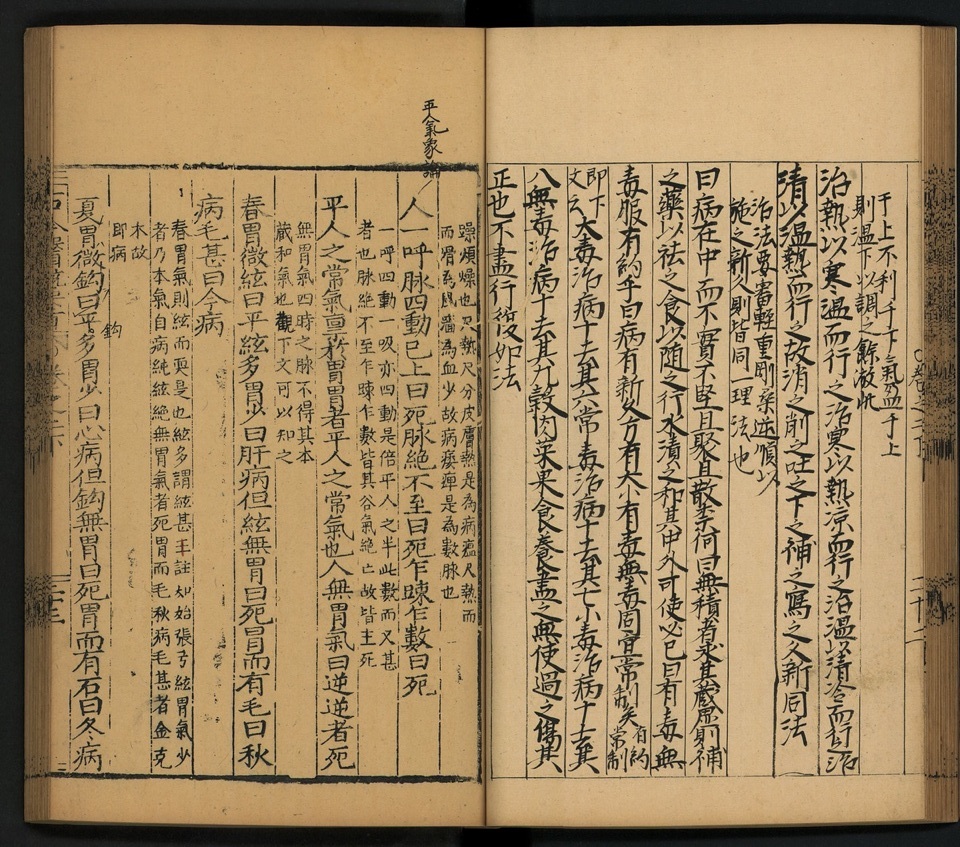 于上不利于下氣盈于上
則溫下以調之餘倣此
治熱以寒溫而行之治寒以熱涼而行之治溫以清冷而行之治
清以溫熱而行之故消之削之吐之下之補之寫之久新同法
治法要審輕重剛柔逆順以
施之新久則皆同一理法也
曰病在中而不實不堅且聚且散柰何曰無積者求其藏虛則補
之藥以祛之食以随之行水漬之和其中外可使必已曰有毒無
毒服有約乎曰病有新久方有大小有毒無毒固宜常制矣
有約
常制
即下
文云
大毒治病十去其六常毒治病十去其七小毒治病十去其
八無毒治病十去其九穀肉菜果食養盡之無使過之傷其
正也不盡行復如法
二十二
平人氣象論
躁煩燥也尺熱尺分皮膚熱是為病瘟尺不熱而
而滑為風濇為血少故病痿痺是為數脉也
人一呼脉四動已上曰死脉絕不至曰死乍踈乍數曰死
一呼四動一吸亦四動是倍平人之半此數而又甚
者也脉絕不至乍踈乍數皆其谷氣絶亡故皆主死
平人之常氣禀於胃胃者平人之常氣也人無胃氣曰逆逆者死
無胃氣四時之脉不得其本
藏和氣也觀下文可以知之
春胃微絃曰平絃多胃少曰肝病但絃無胃曰死胃而有毛曰秋
病毛甚曰今病
春胃氣則絃而耎是也絃多謂絃甚王註如始張弓絃胃氣少
者乃本氣自病純絃絕無胃氣者死胃而毛秋病毛甚者金克
木故
即病
夏胃微鈎曰平鈎多胃少曰心病但鈎無胃曰死胃而有石曰冬病
鈎
二十三